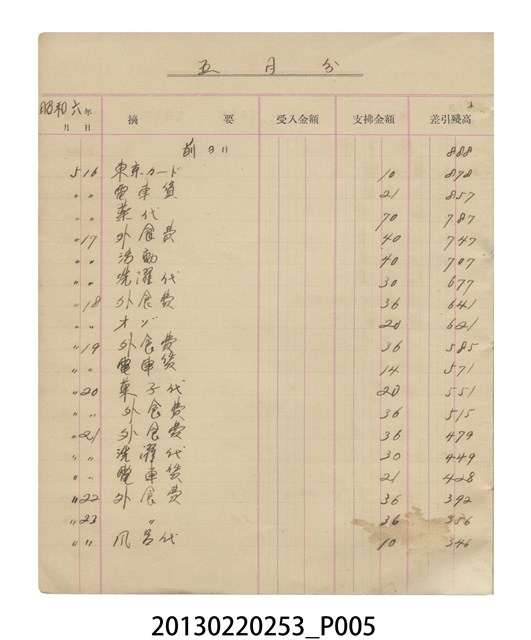 五月分
昭和六年
月 日 摘要 受入金額 支拂金額 差引殘高
前ヨリ 888
5 16 東京カード 10 878
〃 〃 電車賃 21 857
〃 〃 薬代 70 787
〃 17 外食費 40 747
〃 〃 活動 40 707
〃 〃 洗濯代 30 677
〃 18 外食費 36 641
〃 〃 20 621
〃 19 外食費 36 585
〃 〃 電車賃 14 571
〃 20 菓子代 20 551
〃 〃 外食費 36 515
〃 21 外食費 36 479
〃 〃 洗濯代 30 449
〃 〃 電車賃 21 428
〃 22 外食費 36 392
〃 23 〃 36 356
〃 〃 風呂代 10 346
20130220253_P005